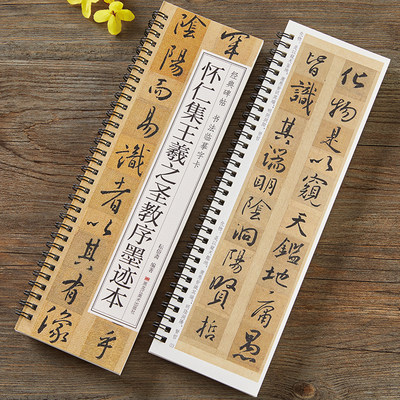 罕
乎
陰陽而易識者以其有像
经典碑帖 书法临摹字卡
怀仁集王羲之圣教序墨迹本
编著
化物是以窺天鑑地庸愚
皆識其端明陰洞陽賢哲